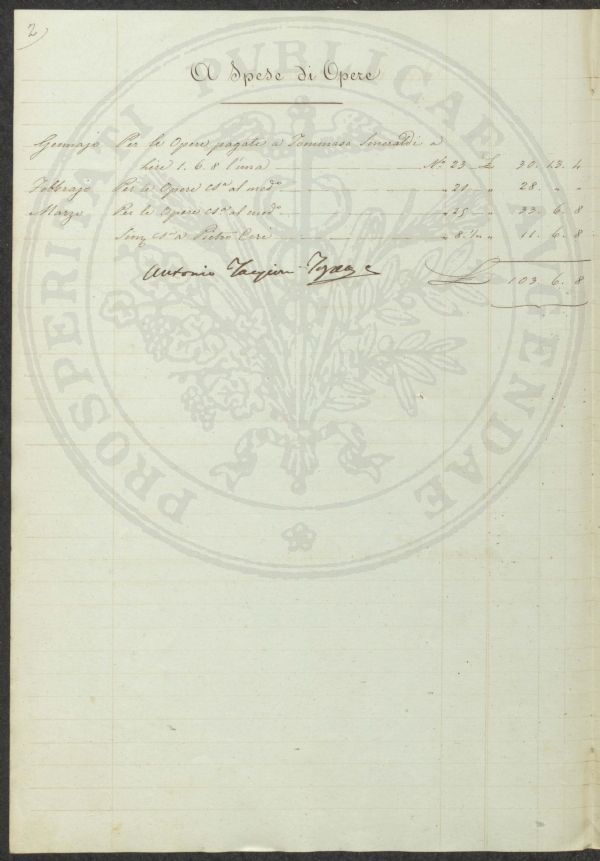 2)
PROSPERITATI PVBLICAE AVGENDAE
A Spese di Opere
Gennajo Per le Opere pagate a Tommaso a
Lire 1. 6. 8 l'una N.° 23 £ 30. 13. 4
Febbrajo Per le Opere al med.° " 21 " 28. " "
Marzo Per le Opere al med.° " 25 " 33. 6. 8
a Pietro Ceri " 8 ½ " 11. 6. 8
Antonio
£ 103. 6. 8